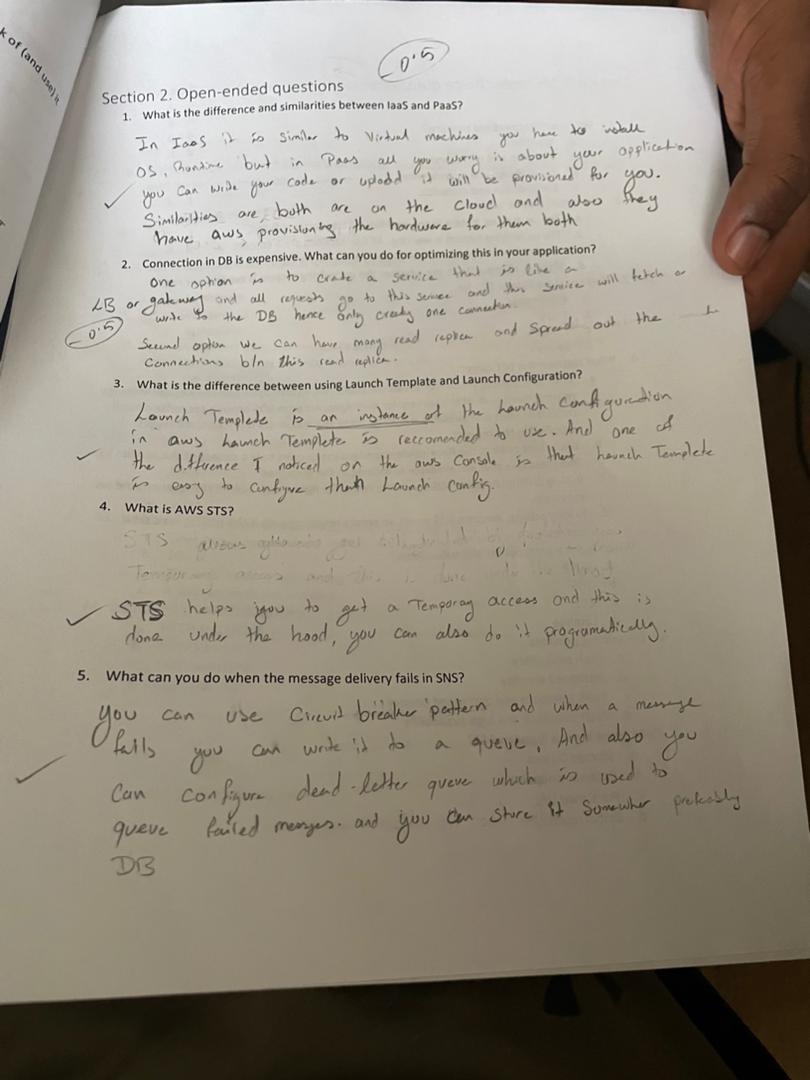 k of (and use) it
-0.5
Section 2. Open-ended questions
1. What is the difference and similarities between IaaS and PaaS?
In IaaS it is similar to Virtual machines you have to install
OS, Runtime but in Paas all you worry is about your application
you can write your code or upload it will be provisioned for you.
Similarities are, both are on the cloud and also they
have aws, provisioning the hardware for them both
2. Connection in DB is expensive. What can you do for optimizing this in your application?
One option is to crate a service that is like a
LB or gateway and all requests go to this service and this service will fetch or
write to the DB hence only creaty one connection.
-0.5
Second option we can have many read replica and spread out the
Connections b/n this read replica.
3. What is the difference between using Launch Template and Launch Configuration?
Launch Templete is an instance of the Launch configuration
in aws Launch Templete is reccomended to use. And one of
the difference I noticed on the aws Console is that Launch Templete
is easy to configure than Launch Config.
4. What is AWS STS?
STS allows
Temporary access and this is done
STS helps you to get a Temporay access and this is
done under the hood, you can also do it programatically.
5. What can you do when the message delivery fails in SNS?
You can use Circuit breaker pattern and when a message
fails you can write it to a queue. And also you
Can configure dead-letter queue which is used to
queue failed messges. and you can store it Somewher
DB